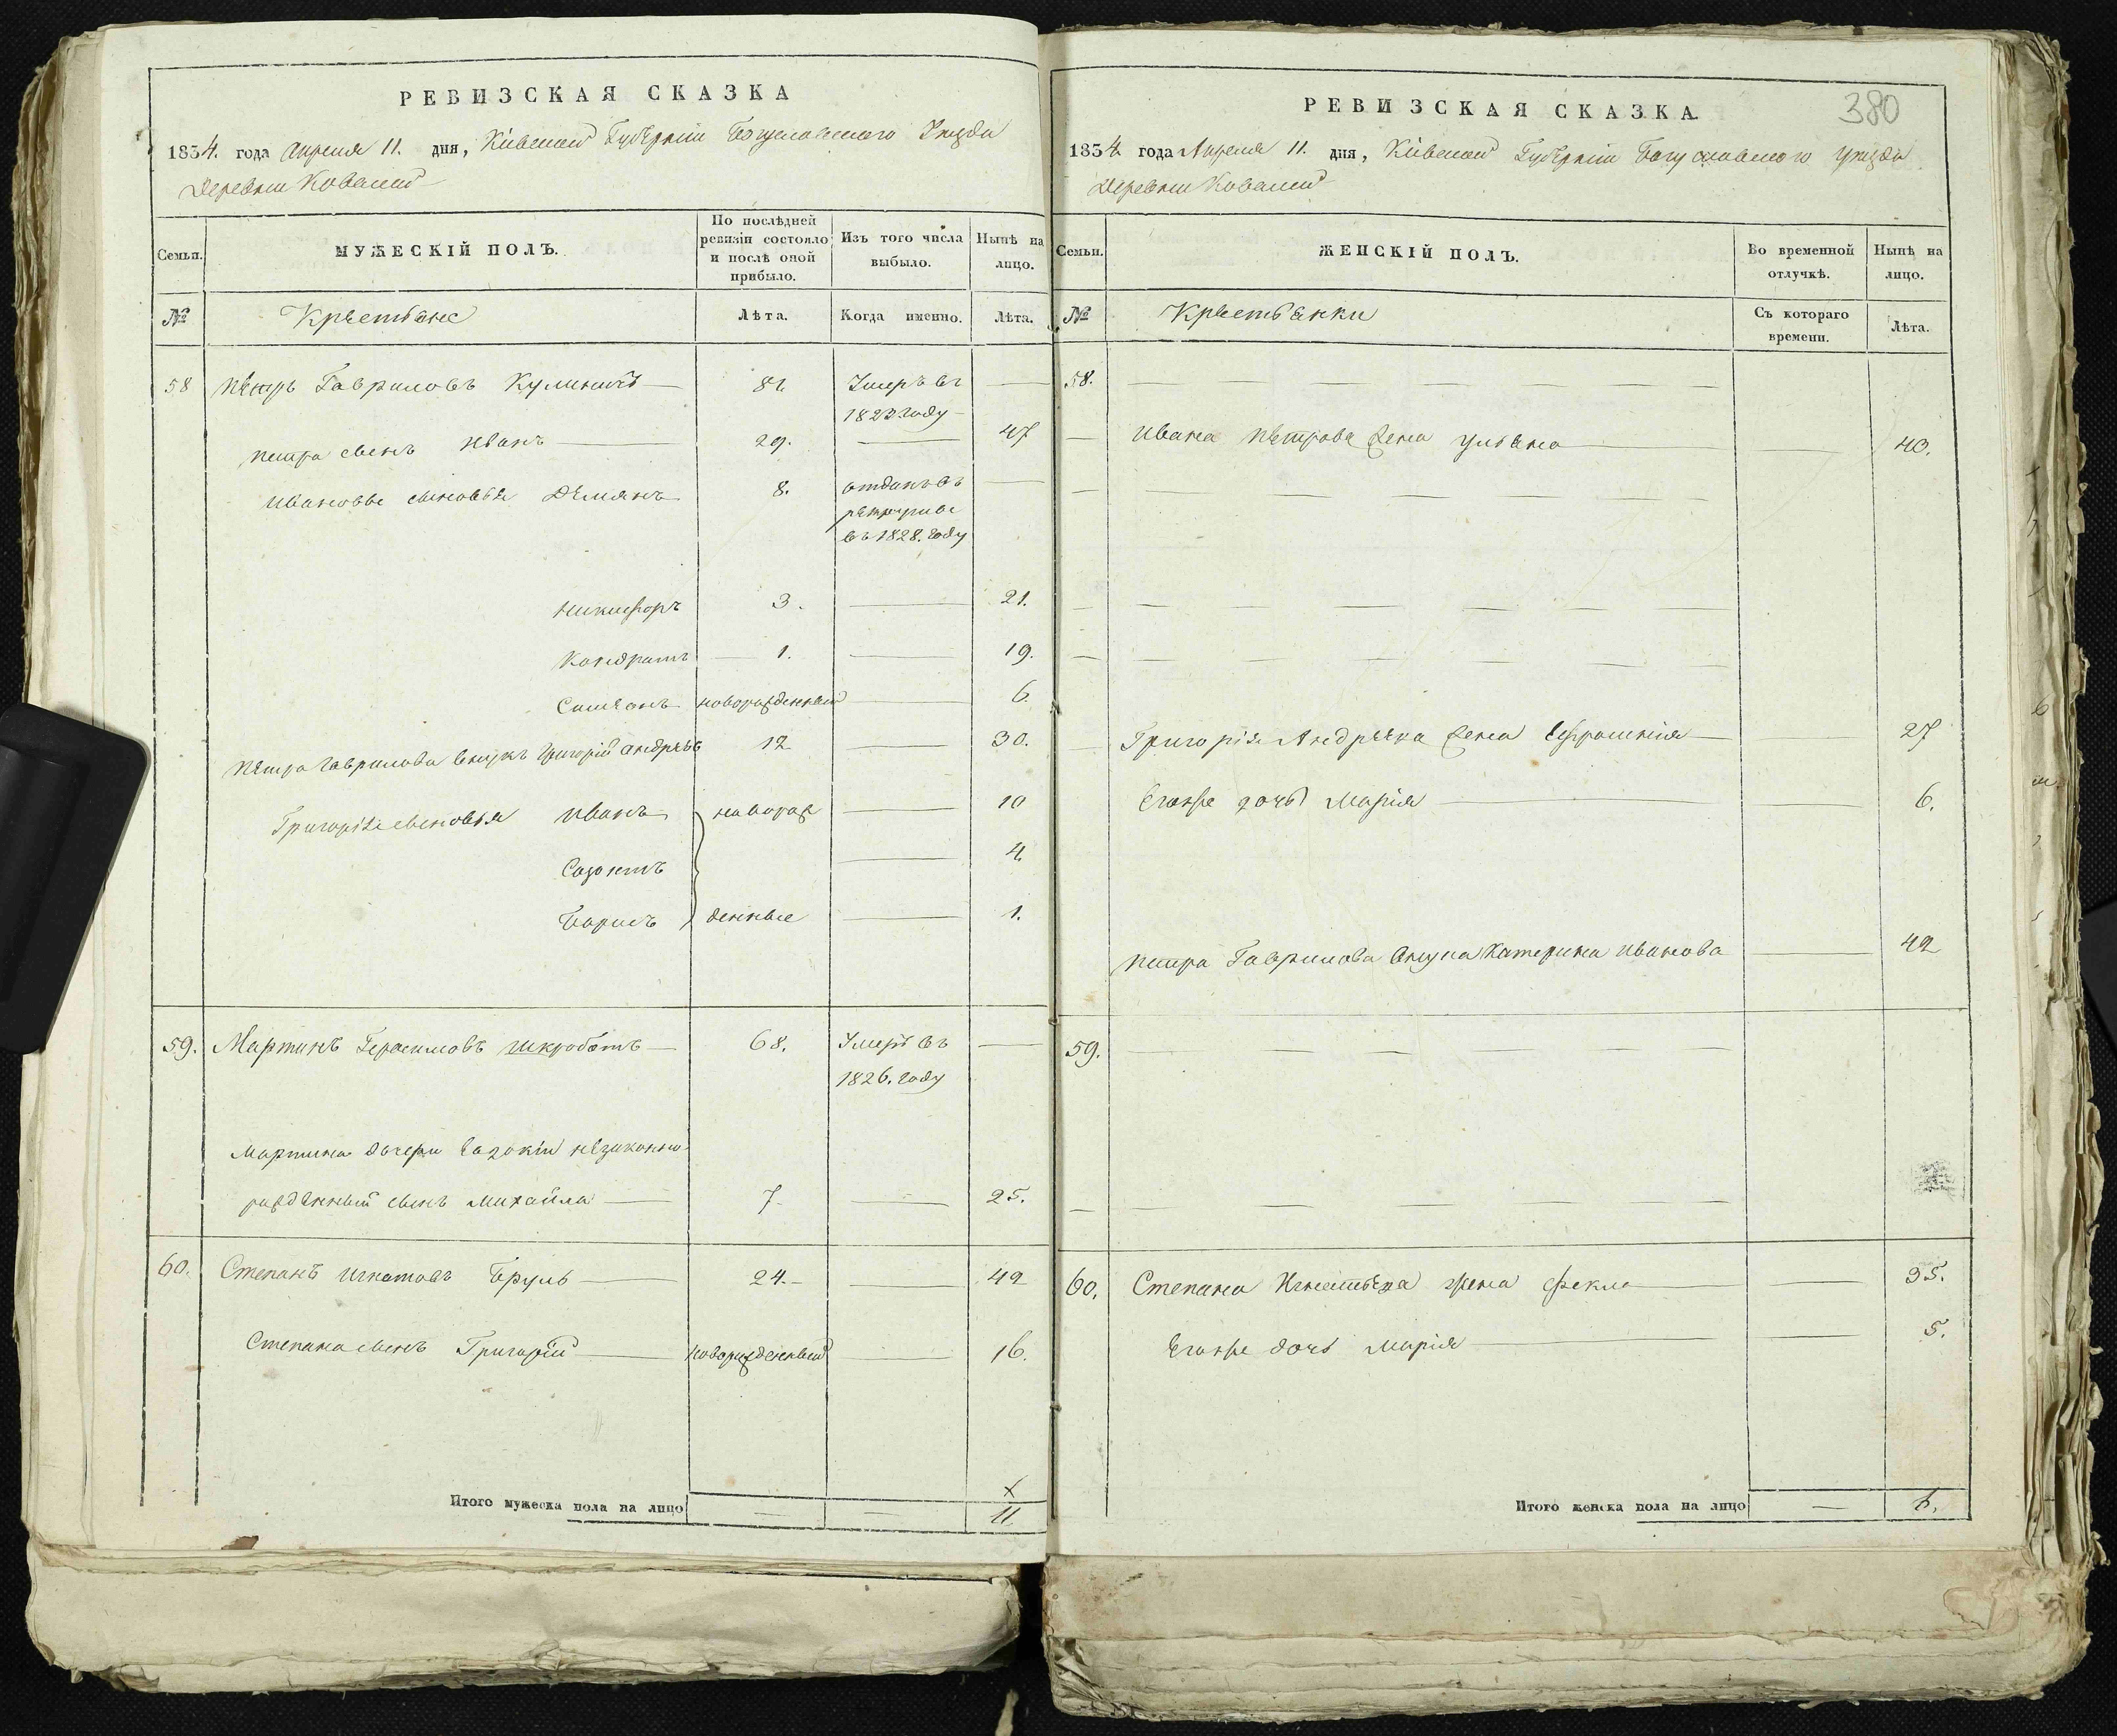 РЕВИЗСКАЯ СКАЗКА
1834. года Апреля 11. дня, Кіевской Губерніи Богуславского Уезда
Деревни Ковалей
Семьи. МУЖЕСКІЙ ПОЛЪ. По послѣдней ревизіи состояло и послѣ оной прибыло. Изъ того числа выбыло. Нынѣ на лицо.
№ Крестьяне Лѣта. Когда именно. Лѣта.
58 Петръ Гавриловъ Кулиничъ 81 Умеръ въ —
1823 году
Петра сынъ Иванъ 29. — 47
Ивановы сыновья Демянъ 8. отданъ въ —
рекруты
въ 1828. году
Никифоръ 3. — 21.
Кондратъ — 1. — 19.
Симеонъ новорожденный — 6.
Петра Гаврилова внукъ Григорій Андреевъ 12 — 30.
Григорія сыновья Иванъ новорож — 10
Созонтъ — 4.
Борисъ денные — 1.
59. Мартинъ Герасимовъ Шкроботъ — 68. Умеръ въ —
1826. году
Мартина дочери Евдокіи незаконно
рожденный сынъ Михайла — 7 — 25.
60. Степанъ Игнатовъ Бруль — 24. — 42
Степана сынъ Григорій — новорожденный — 16.
Итого мужеска пола на лицо — — 11
380
РЕВИЗСКАЯ СКАЗКА.
1834. года Апреля 11. дня, Кіевской Губерніи Богуславского Уезда
Деревни Ковалей
Семьи. ЖЕНСКІЙ ПОЛЪ. Во временной отлучкѣ. Нынѣ на лицо.
№ Крестьянки Съ котораго времени. Лѣта.
58. — — — — —
— Ивана Петрова жена Ульяна — — 40.
Григорія Андреева жена Ефросинія — — 27
Егоже дочь Марія — — 6.
Петра Гаврилова внука Катерина Иванова — 42
59. — — — — —
60. Степана Игнатьева жена Фекла — — 35.
Егоже дочь Марія — — 5.
Итого женска пола на лицо — 6.